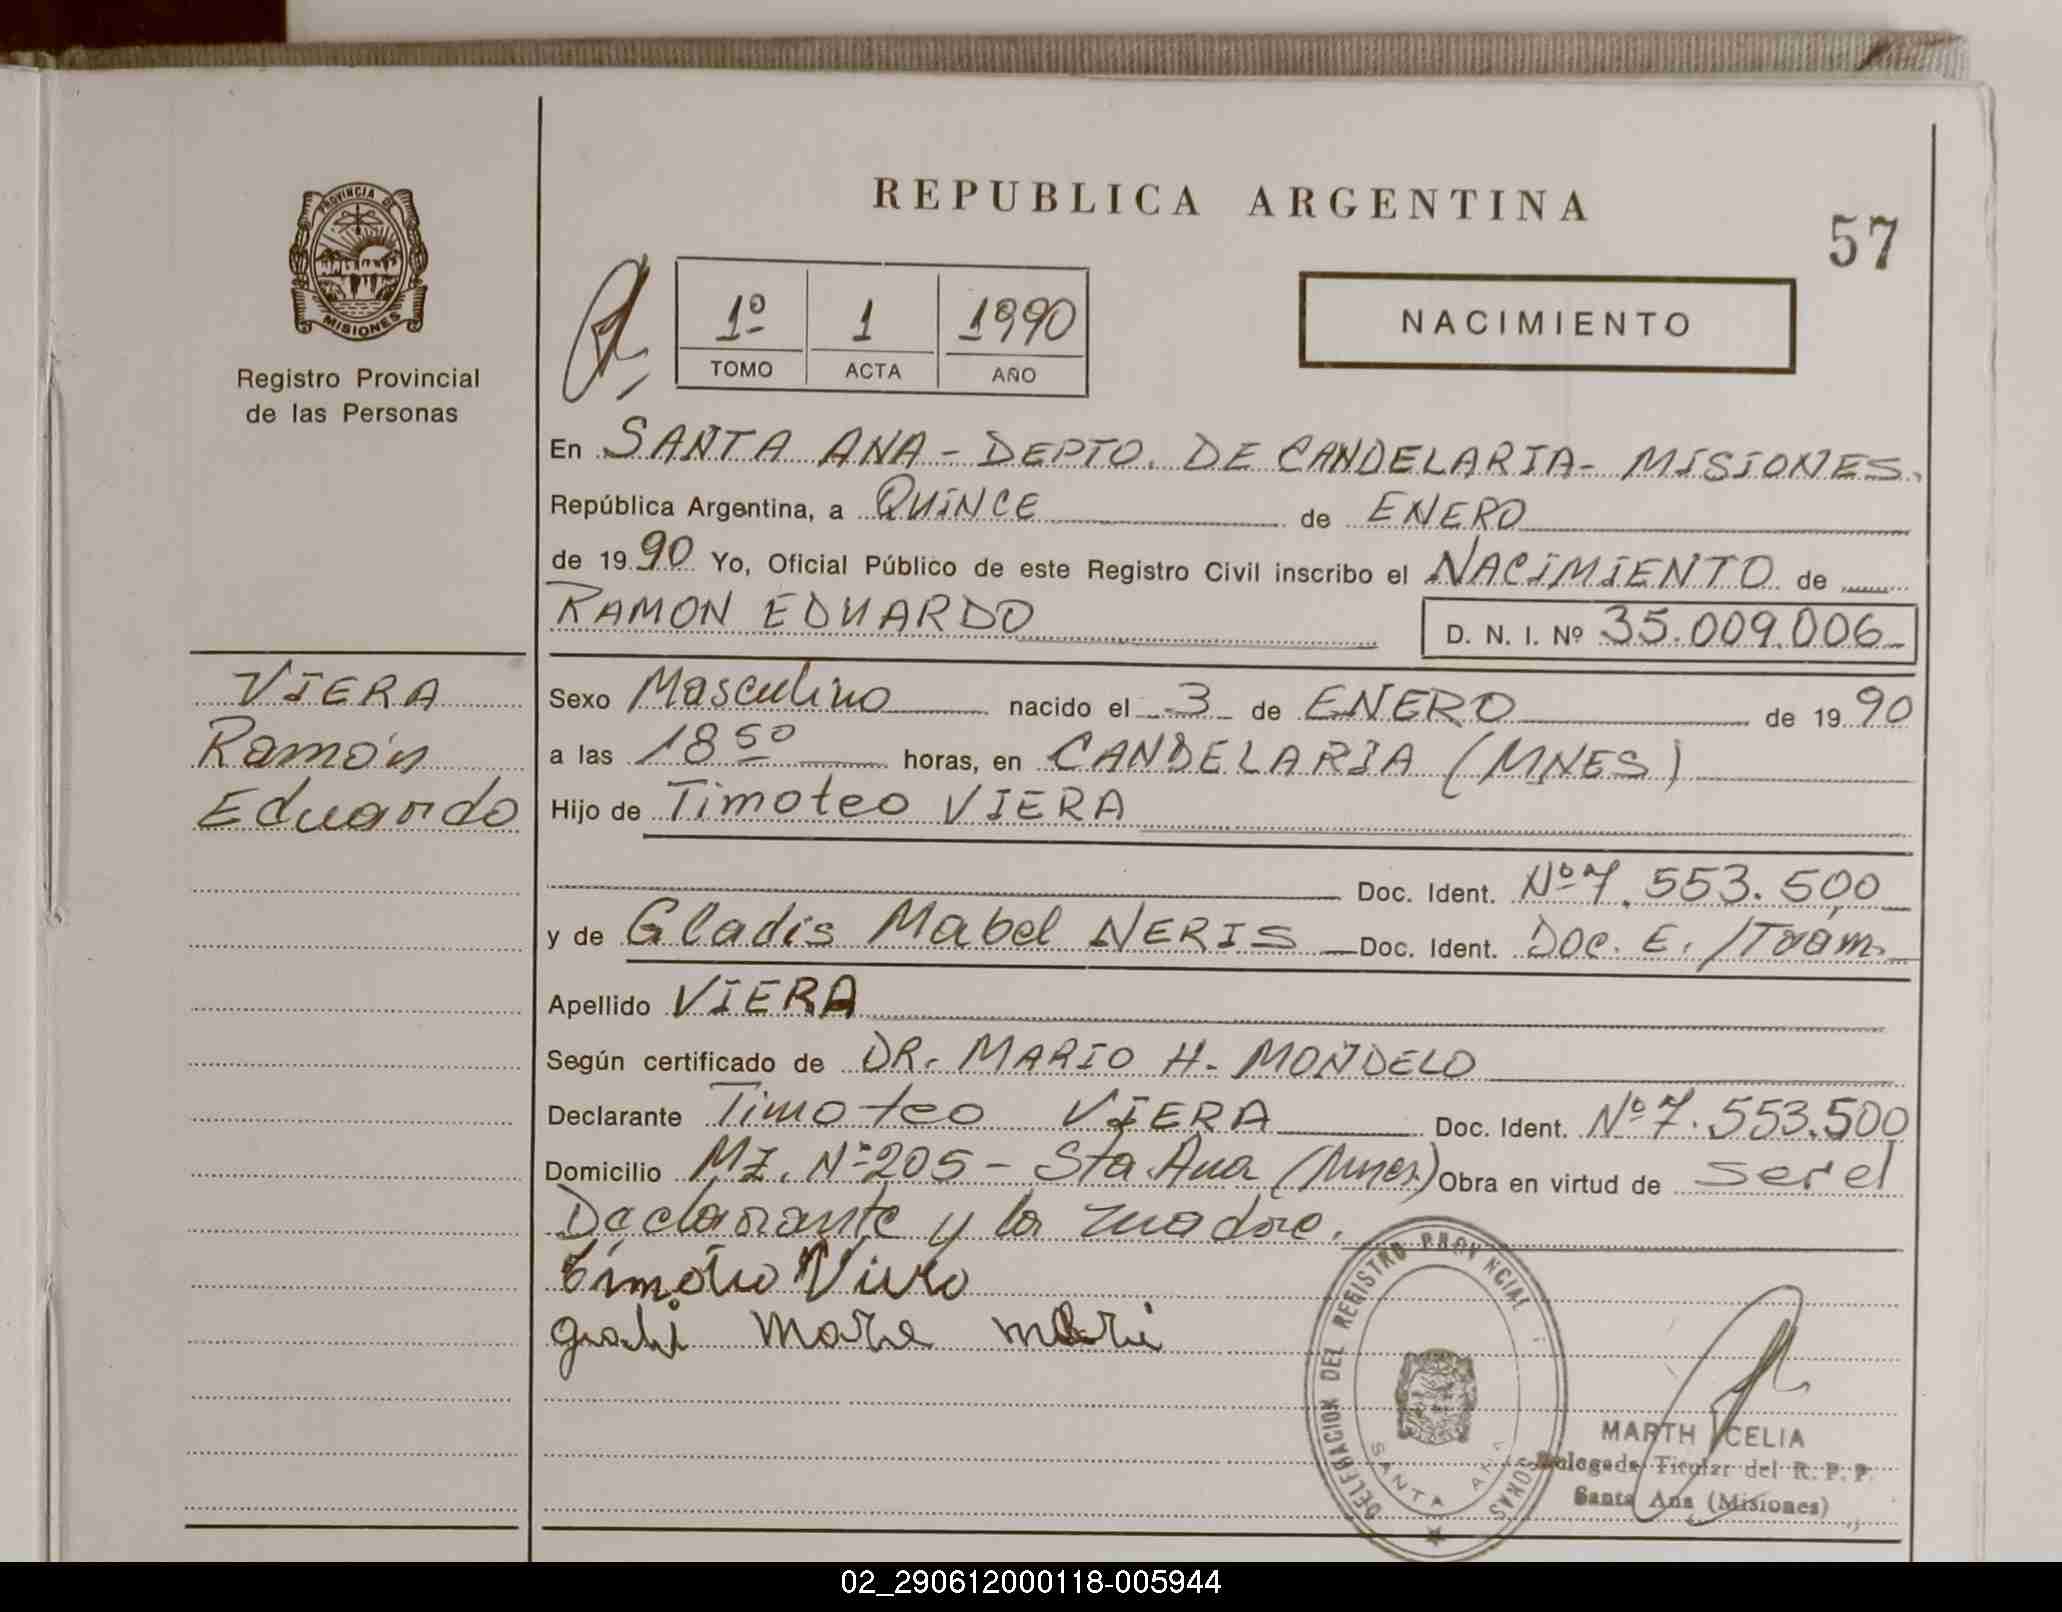 REPUBLICA ARGENTINA
57
PROVINCIA DE
MISIONES
Registro Provincial
de las Personas
1º 1 1990
TOMO ACTA AÑO
NACIMIENTO
En SANTA ANA - DEPTO. DE CANDELARIA - MISIONES.
República Argentina, a QUINCE de ENERO
de 1990 Yo, Oficial Público de este Registro Civil inscribo el NACIMIENTO de
RAMON EDUARDO D. N. I. Nº 35.009.006
VIERA
Ramón
Eduardo
Sexo Masculino nacido el 3 de ENERO de 1990
a las 18 50 horas, en CANDELARIA (MNES)
Hijo de Timoteo VIERA
Doc. Ident. Nº 7.553.500
y de Gladis Mabel NERIS Doc. Ident. Doc. E. /Tram.
Apellido VIERA
Según certificado de DR. MARIO H. MONDELO
Declarante Timoteo VIERA Doc. Ident. Nº 7.553.500
Domicilio MZ. Nº 205 - Sta. Ana (Mnes.) Obra en virtud de ser el
Declarante y la madre.
DELEGACION DEL REGISTRO PROVINCIAL
SANTA ANA
MARTH CELIA
Delegada Titular del R. P. P.
Santa Ana (Misiones)
02_290612000118-005944